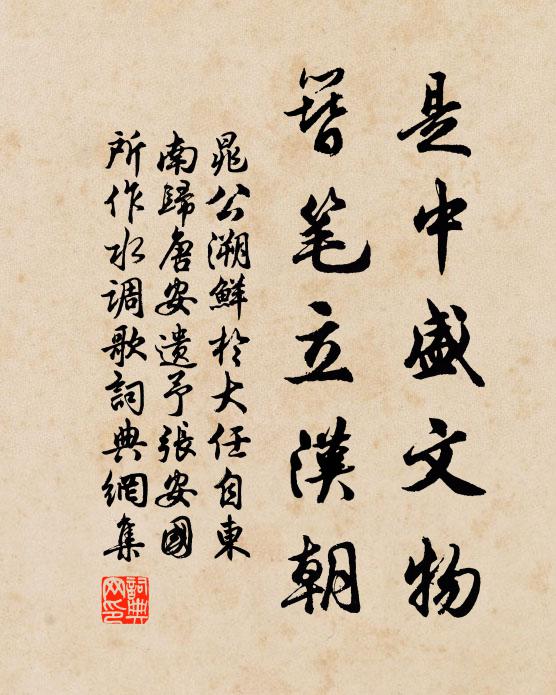 是中盛文物
簪笔立漢朝
晁公溯鮮於大任自東
南歸唐安遺予張安國
所作水調歌詞典網集
詞典網印